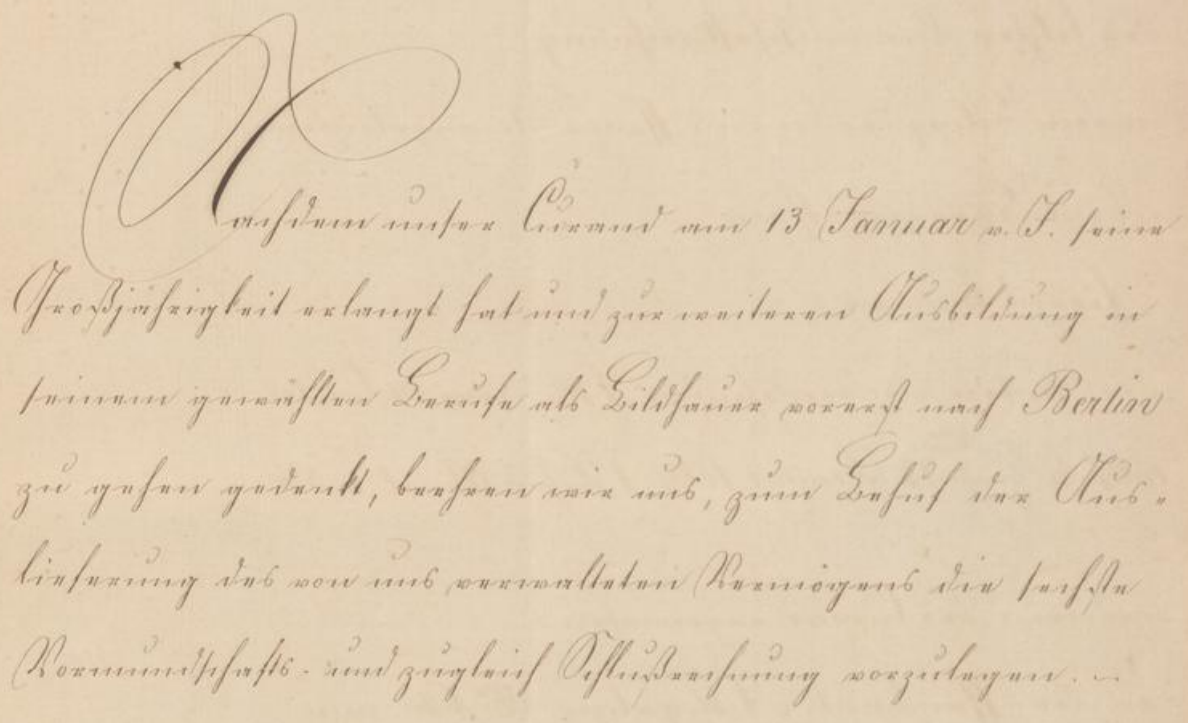 Nachdem unser Curand am 13 Januar v. J. seine
Großjährigkeit erlangt hat und zur weiteren Ausbildung in
seinem gewählten Berufe als Bildhauer vorerst nach Berlin
zu gehen gedenkt, beehren wir uns, zum Behuf der Aus-
lieferung des von uns verwalteten Vermögens die sechste
Vormundschafts- und zugleich Schlußrechnung vorzulegen. –